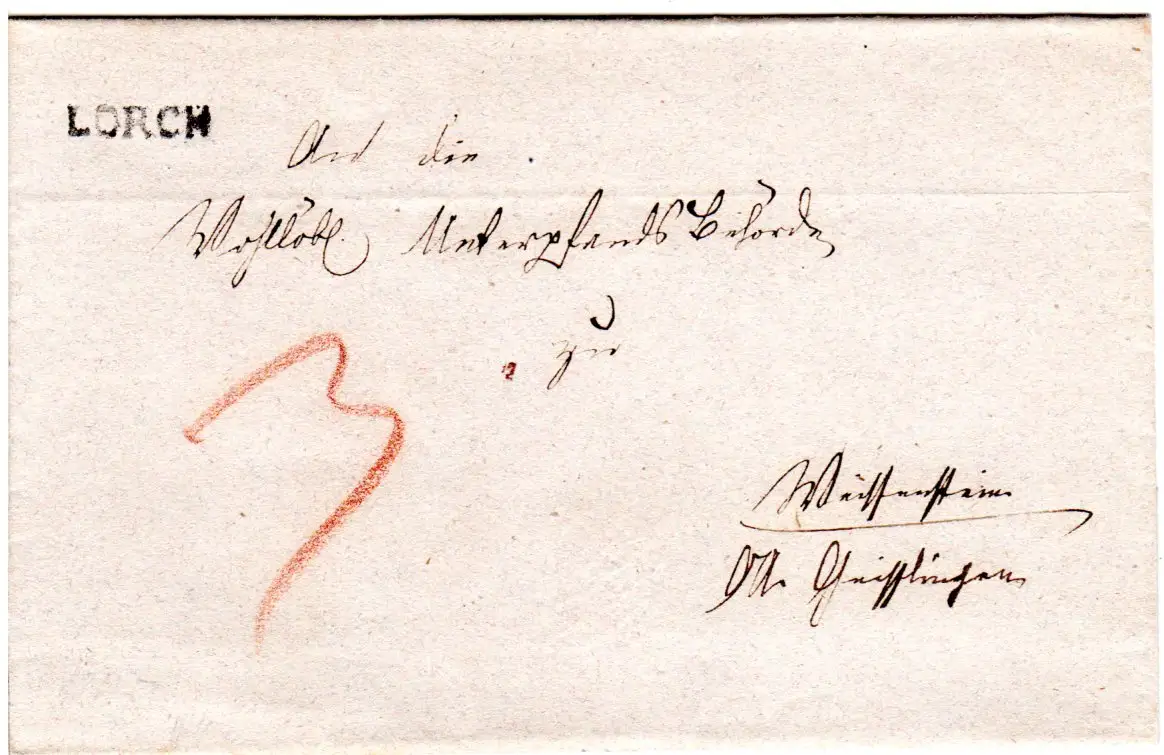 LORCH
An die
Wohllöbl. Unterpfands Behörde
zu
3
Weissenstein
OA. Geisslingen